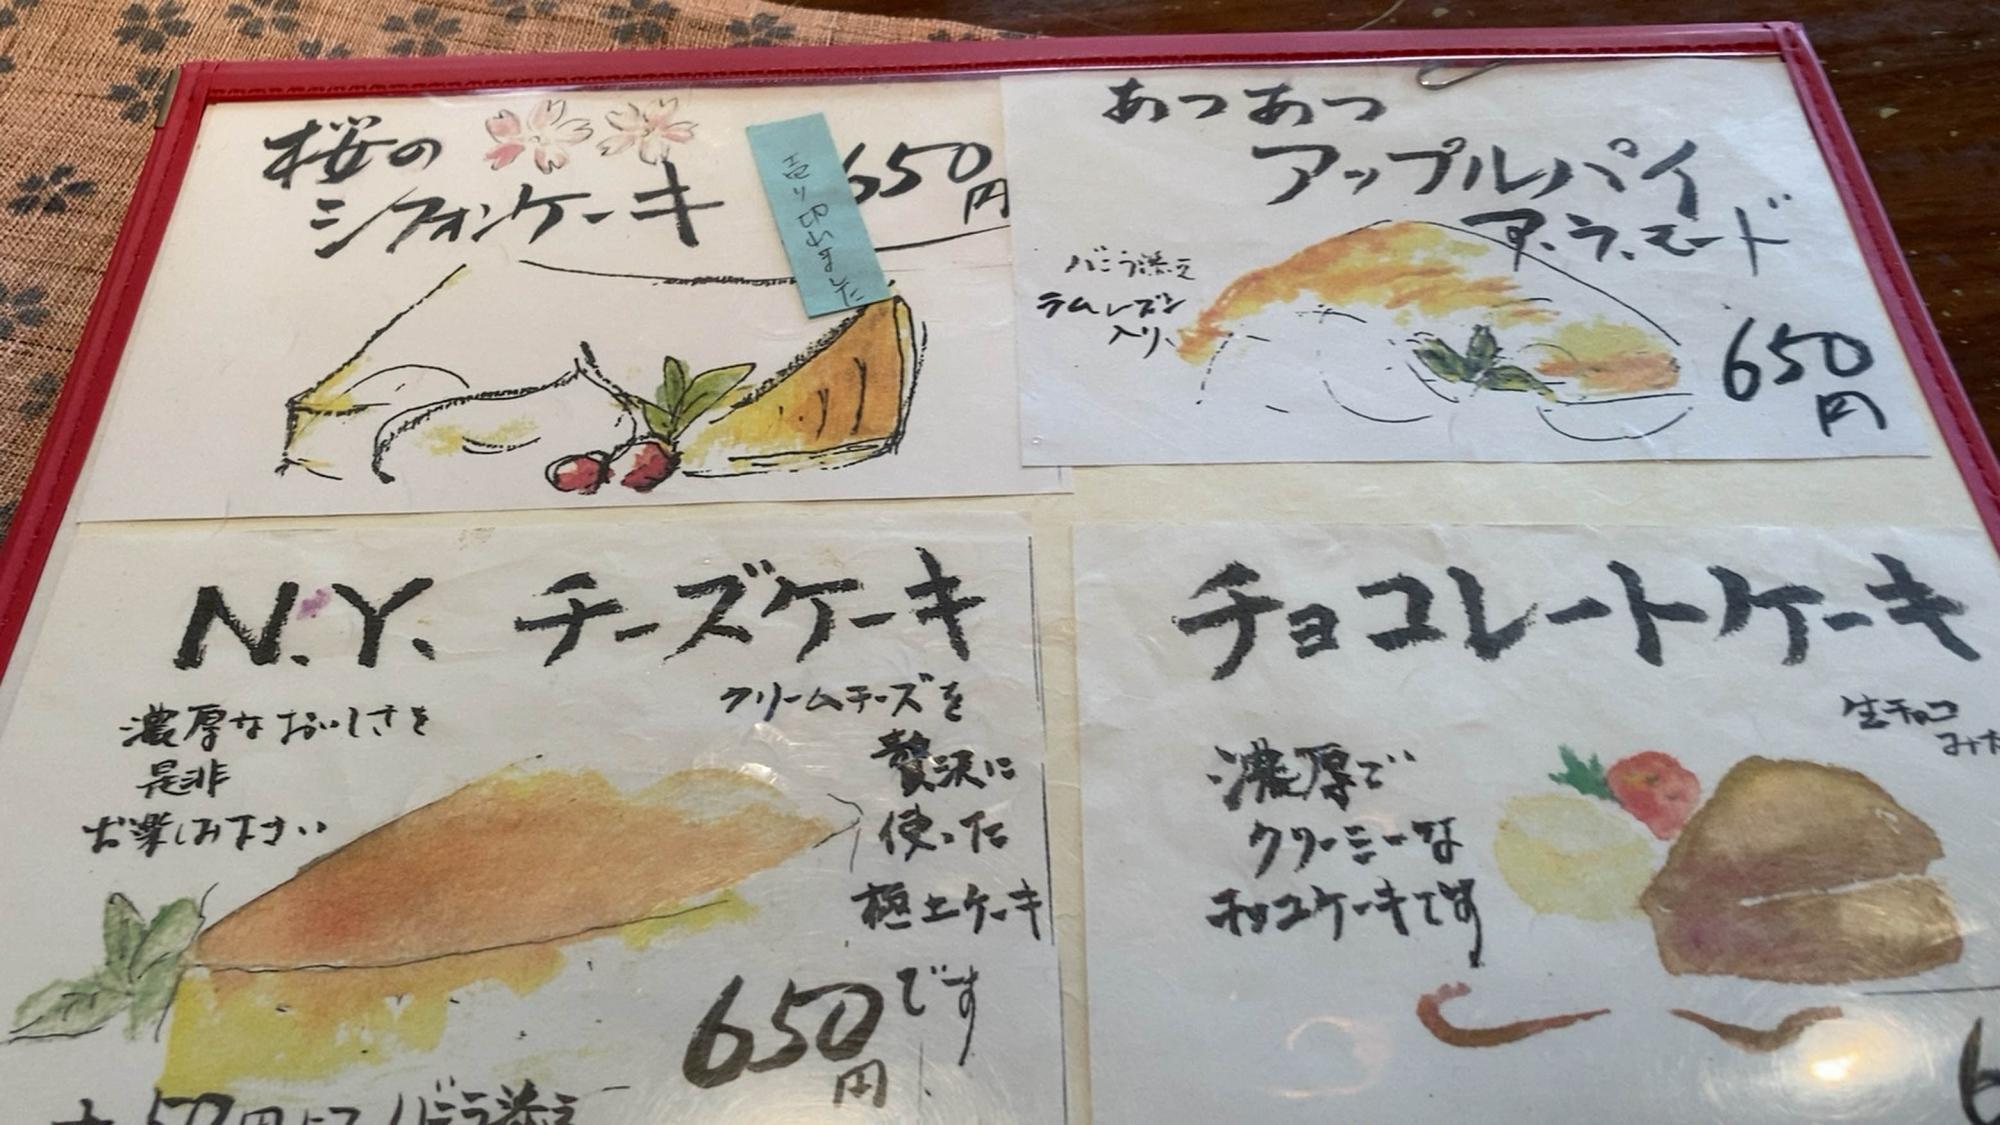 桜の
シフォンケーキ
売り切れました
650
円
あつあつ
アップルパイ
ア.ラ.モード
バニラ添え
ラムレーズン
入り
650
円
N.Y. チーズケーキ
濃厚なおいしさを
是非
お楽しみ下さい
クリームチーズを
贅沢に
使った
極上ケーキ
です
650
円
+50円にてバニラ添え
チョコレートケーキ
生チョコ
みた
濃厚で
クリーミーな
チョコケーキです
6